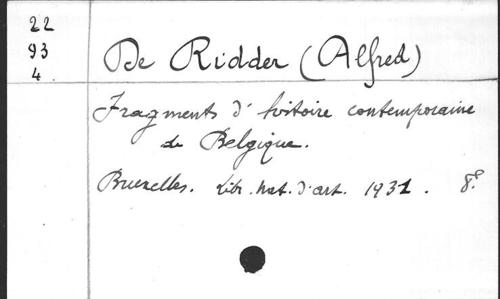 22
93
4
De Ridder (Alfred)
Fragments d'histoire contemporaine
de Belgique.
Bruxelles. Libr. Nat. d'art. 1931. 8°